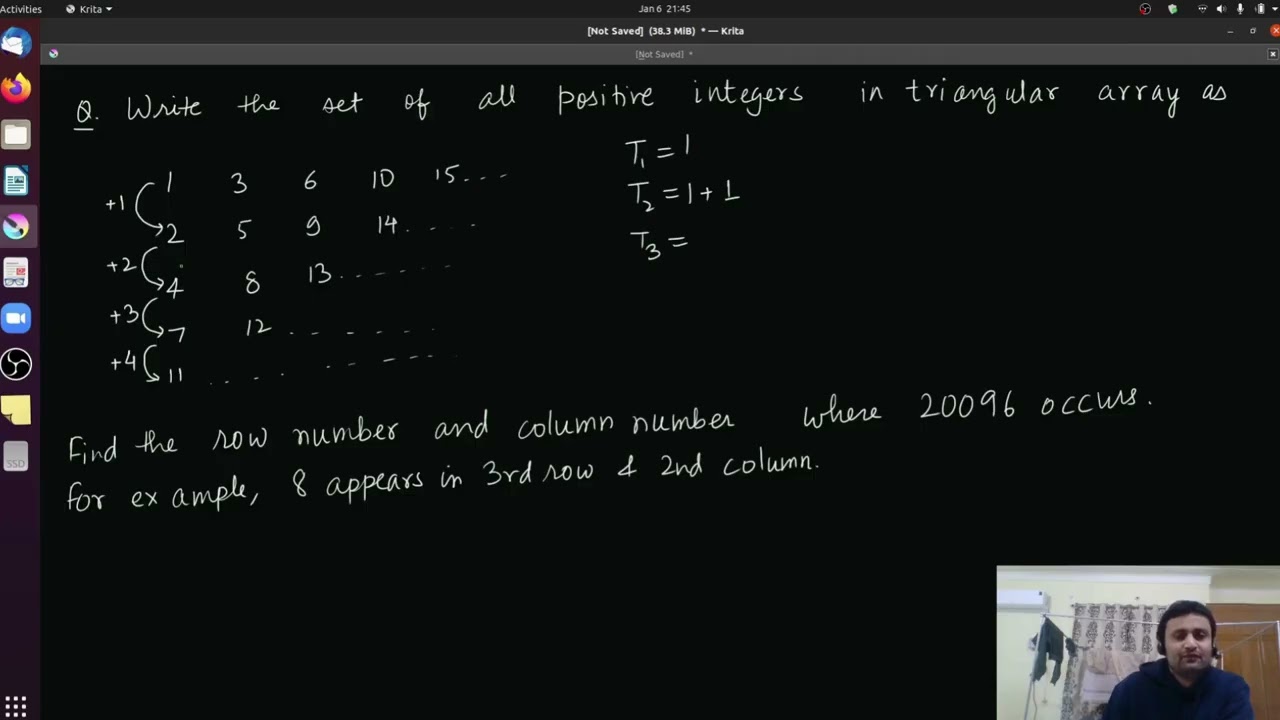 Activities Krita Jan 6 21:45
[Not Saved] (38.3 MiB) * — Krita
[Not Saved] *
Q. Write the set of all positive integers in triangular array as
1 3 6 10 15...
2 5 9 14.....
4 8 13.......
7 12 .......
11 .........
+1
+2
+3
+4
T1 = 1
T2 = 1 + 1
T3 =
Find the row number and column number where 20096 occurs.
for example, 8 appears in 3rd row & 2nd column.
SSD